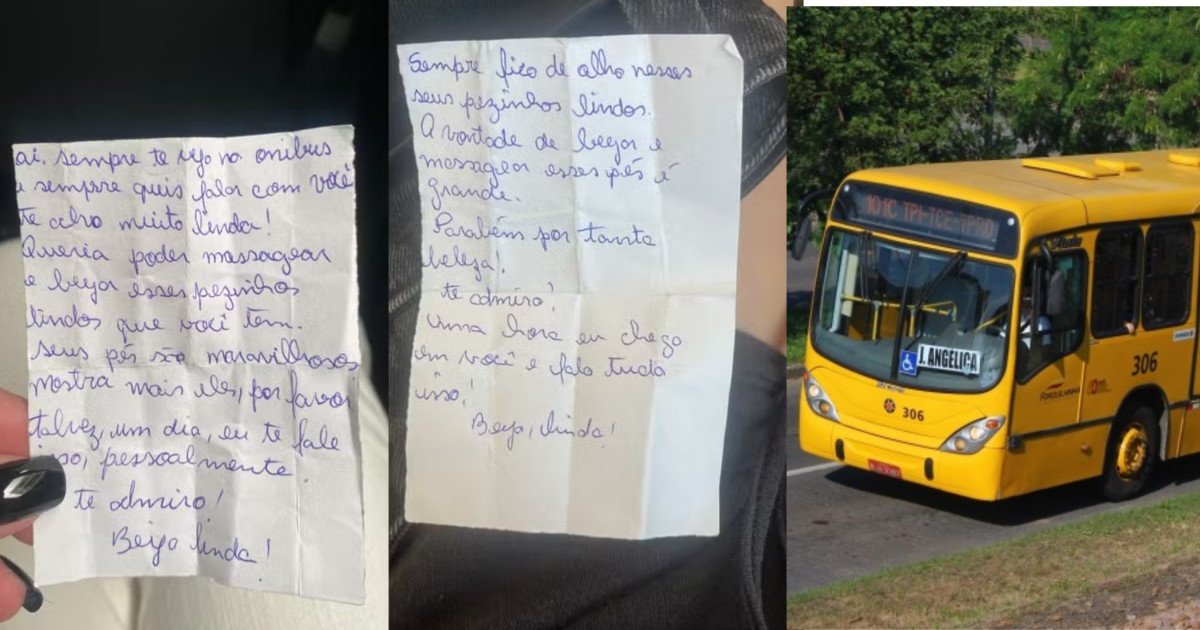 oi. sempre te vejo no onibus
e sempre quis falar com você
te acho muito linda!
Queria poder massagear
e beijar esses pezinhos
lindos que você tem.
seus pés são maravilhosos
mostra mais eles, por favor
talvez, um dia, eu te fale
isso, pessoalmente
te admiro!
Beijo linda!
Sempre fico de olho nesses
seus pezinhos lindos.
A vontade de beijar e
massagear esses pés é
grande.
Parabéns por tanta
beleza!
te admiro!
Uma hora eu chego
em você e falo tudo
isso!
Beijo, linda!
101C TPI-TCE-TPRO
J. ANGELICA
306
306
FORQUILHINHA